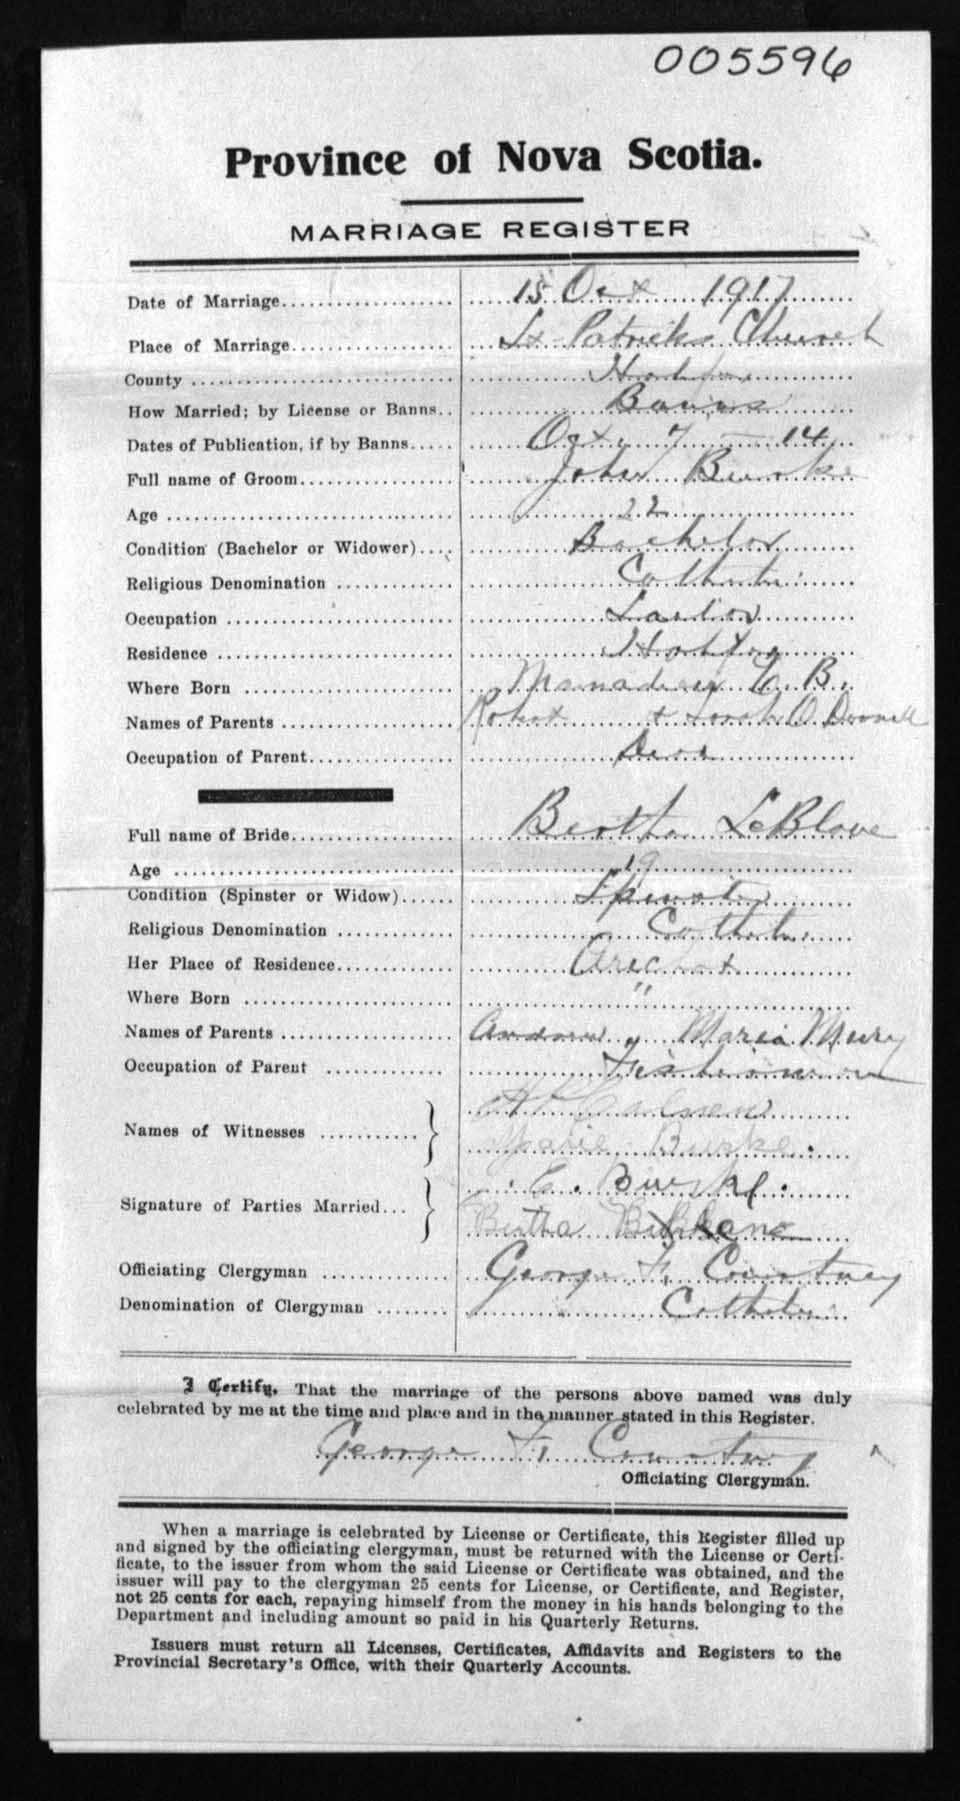 005596
Province of Nova Scotia.
MARRIAGE REGISTER
Date of Marriage 15 Oct 1917
Place of Marriage St Patricks Church
County Halifax
How Married; by License or Banns Banns
Dates of Publication, if by Banns Oct 7 - 14
Full name of Groom John Burke
Age 22
Condition (Bachelor or Widower) Bachelor
Religious Denomination Catholic
Occupation Sailor
Residence Halifax
Where Born C. B.
Names of Parents Robert & Sarah O Donnell
Occupation of Parent
Full name of Bride Bertha LeBlanc
Age 19
Condition (Spinster or Widow) Spinster
Religious Denomination Catholic
Her Place of Residence Arichat
Where Born "
Names of Parents Andrew Maria
Occupation of Parent Fisherman
Names of Witnesses
Burke.
Signature of Parties Married E. Burke.
Bertha
Officiating Clergyman George F. Courtney
Denomination of Clergyman Catholic
I Certify, That the marriage of the persons above named was duly
celebrated by me at the time and place and in the manner stated in this Register.
George F. Courtney
Officiating Clergyman.
When a marriage is celebrated by License or Certificate, this Register filled up
and signed by the officiating clergyman, must be returned with the License or Certi-
ficate, to the issuer from whom the said License or Certificate was obtained, and the
issuer will pay to the clergyman 25 cents for License, or Certificate, and Register,
not 25 cents for each, repaying himself from the money in his hands belonging to the
Department and including amount so paid in his Quarterly Returns.
Issuers must return all Licenses, Certificates, Affidavits and Registers to the
Provincial Secretary's Office, with their Quarterly Accounts.